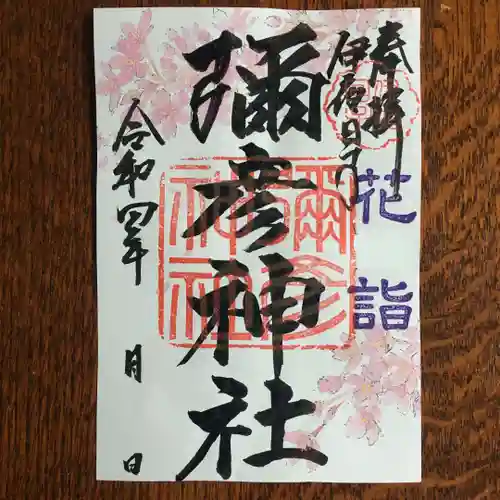 奉拝
伊夜日子
花詣
彌彦神社
彌彦神社
令和四年
月
日